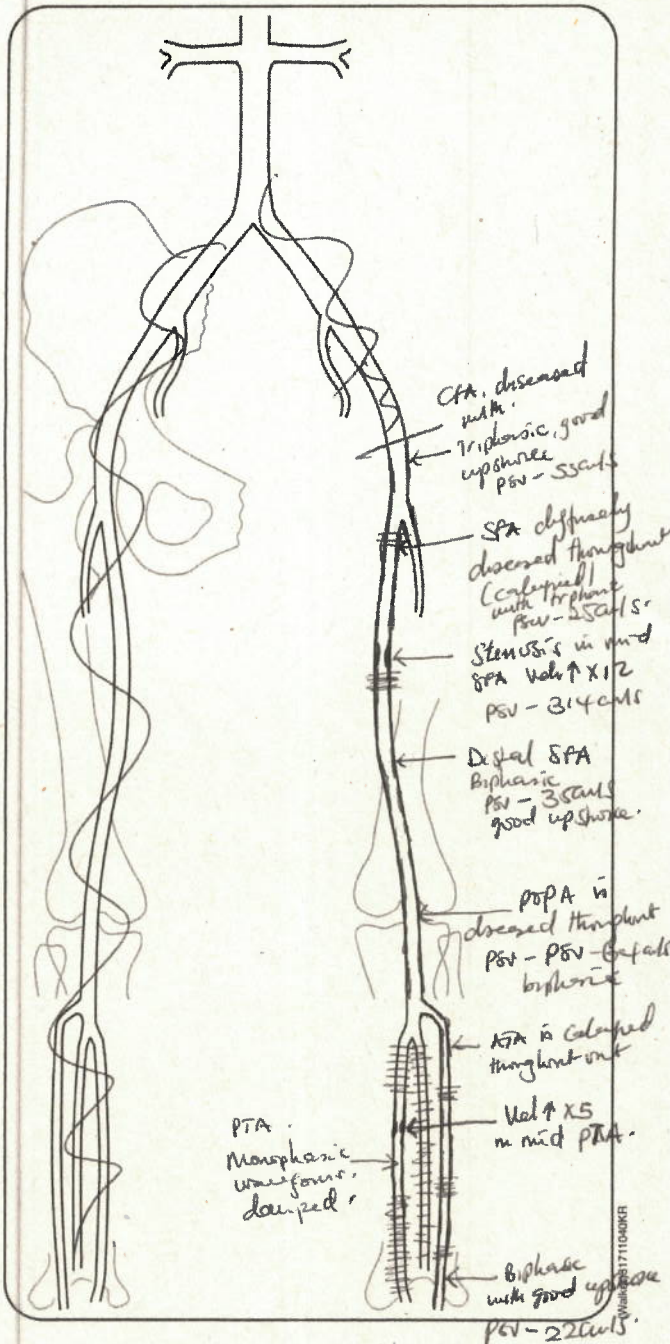 CFA. diseased
with.
Triphasic, good
upstroke
PSV - 55cm/s
SFA diffusely
diseased throughout
(calcified)
with triphasic
PSV - 25cm/s.
Stenosis in mid
SFA Vel ↑ X12
PSV - 314cm/s
Distal SFA
Biphasic
PSV - 35cm/s
good upstroke.
POPA is
diseased throughout
PSV - PSV - 64cm/s
biphasic
ATA is
throughout
Vel ↑ X5
in mid PTA.
PTA
Monophasic
waveforms.
damped.
Biphasic
with good upstroke
PSV - 22cm/s.